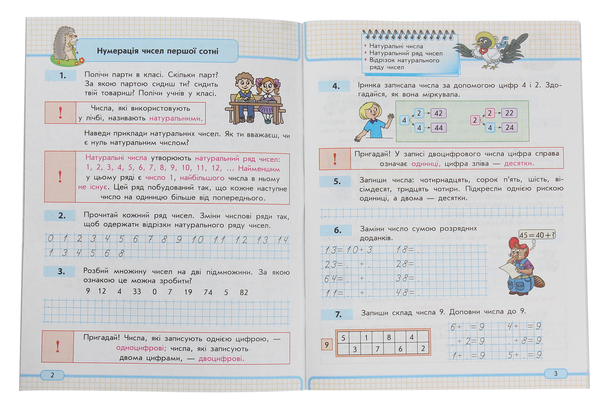 Нумерація чисел першої сотні
1. Полічи парти в класі. Скільки парт?
За якою партою сидиш ти? сидить
твій товариш? Полічи учнів у класі.
! Числа, які використовують
у лічбі, називають натуральними.
Наведи приклади натуральних чисел. Як ти вважаєш, чи
є нуль натуральним числом?
! Натуральні числа утворюють натуральний ряд чисел:
1, 2, 3, 4, 5, 6, 7, 8, 9, 10, 11, 12, ... Найменшим
у цьому ряді є число 1, найбільшого числа в ньому
не існує. Цей ряд побудований так, що кожне наступне
число на одиницю більше від попереднього.
2. Прочитай кожний ряд чисел. Зміни числові ряди так,
щоб одержати відрізки натурального ряду чисел.
0 1 2 3 4 5 6 7 8 9 10 11 12 13 14
1 3 4 5 6 8
3. Розбий множину чисел на дві підмножини. За якою
ознакою це можна зробити?
9 12 4 33 0 7 19 74 5 82
! Пригадай! Числа, які записують однією цифрою, —
одноцифрові; числа, які записують
двома цифрами, — двоцифрові.
2
• Натуральні числа
• Натуральний ряд чисел
• Відрізок натурального
ряду чисел
4. Іринка записала числа за допомогою цифр 4 і 2. Здо-
гадайся, як вона міркувала.
4 2 → 42 2 2 → 22
4 4 → 44 2 4 → 24
! Пригадай! У записі двоцифрового числа цифра справа
означає одиниці, цифра зліва — десятки.
5. Запиши числа: чотирнадцять, сорок п'ять, шість, ві-
сімдесят, тридцять чотири. Підкресли однією рискою
одиниці, а двома — десятки.
6. Заміни число сумою розрядних
доданків.
45=40+!
13=10+3 18=
23= + 28=
64= + 38=
11= + 48=
7. Запиши склад числа 9. Доповни числа до 9.
9 5 1 8 4
3 7 6 2
6+ =9 4+ =9
+2=9 +8=9
1+ =9 5+ =9
3